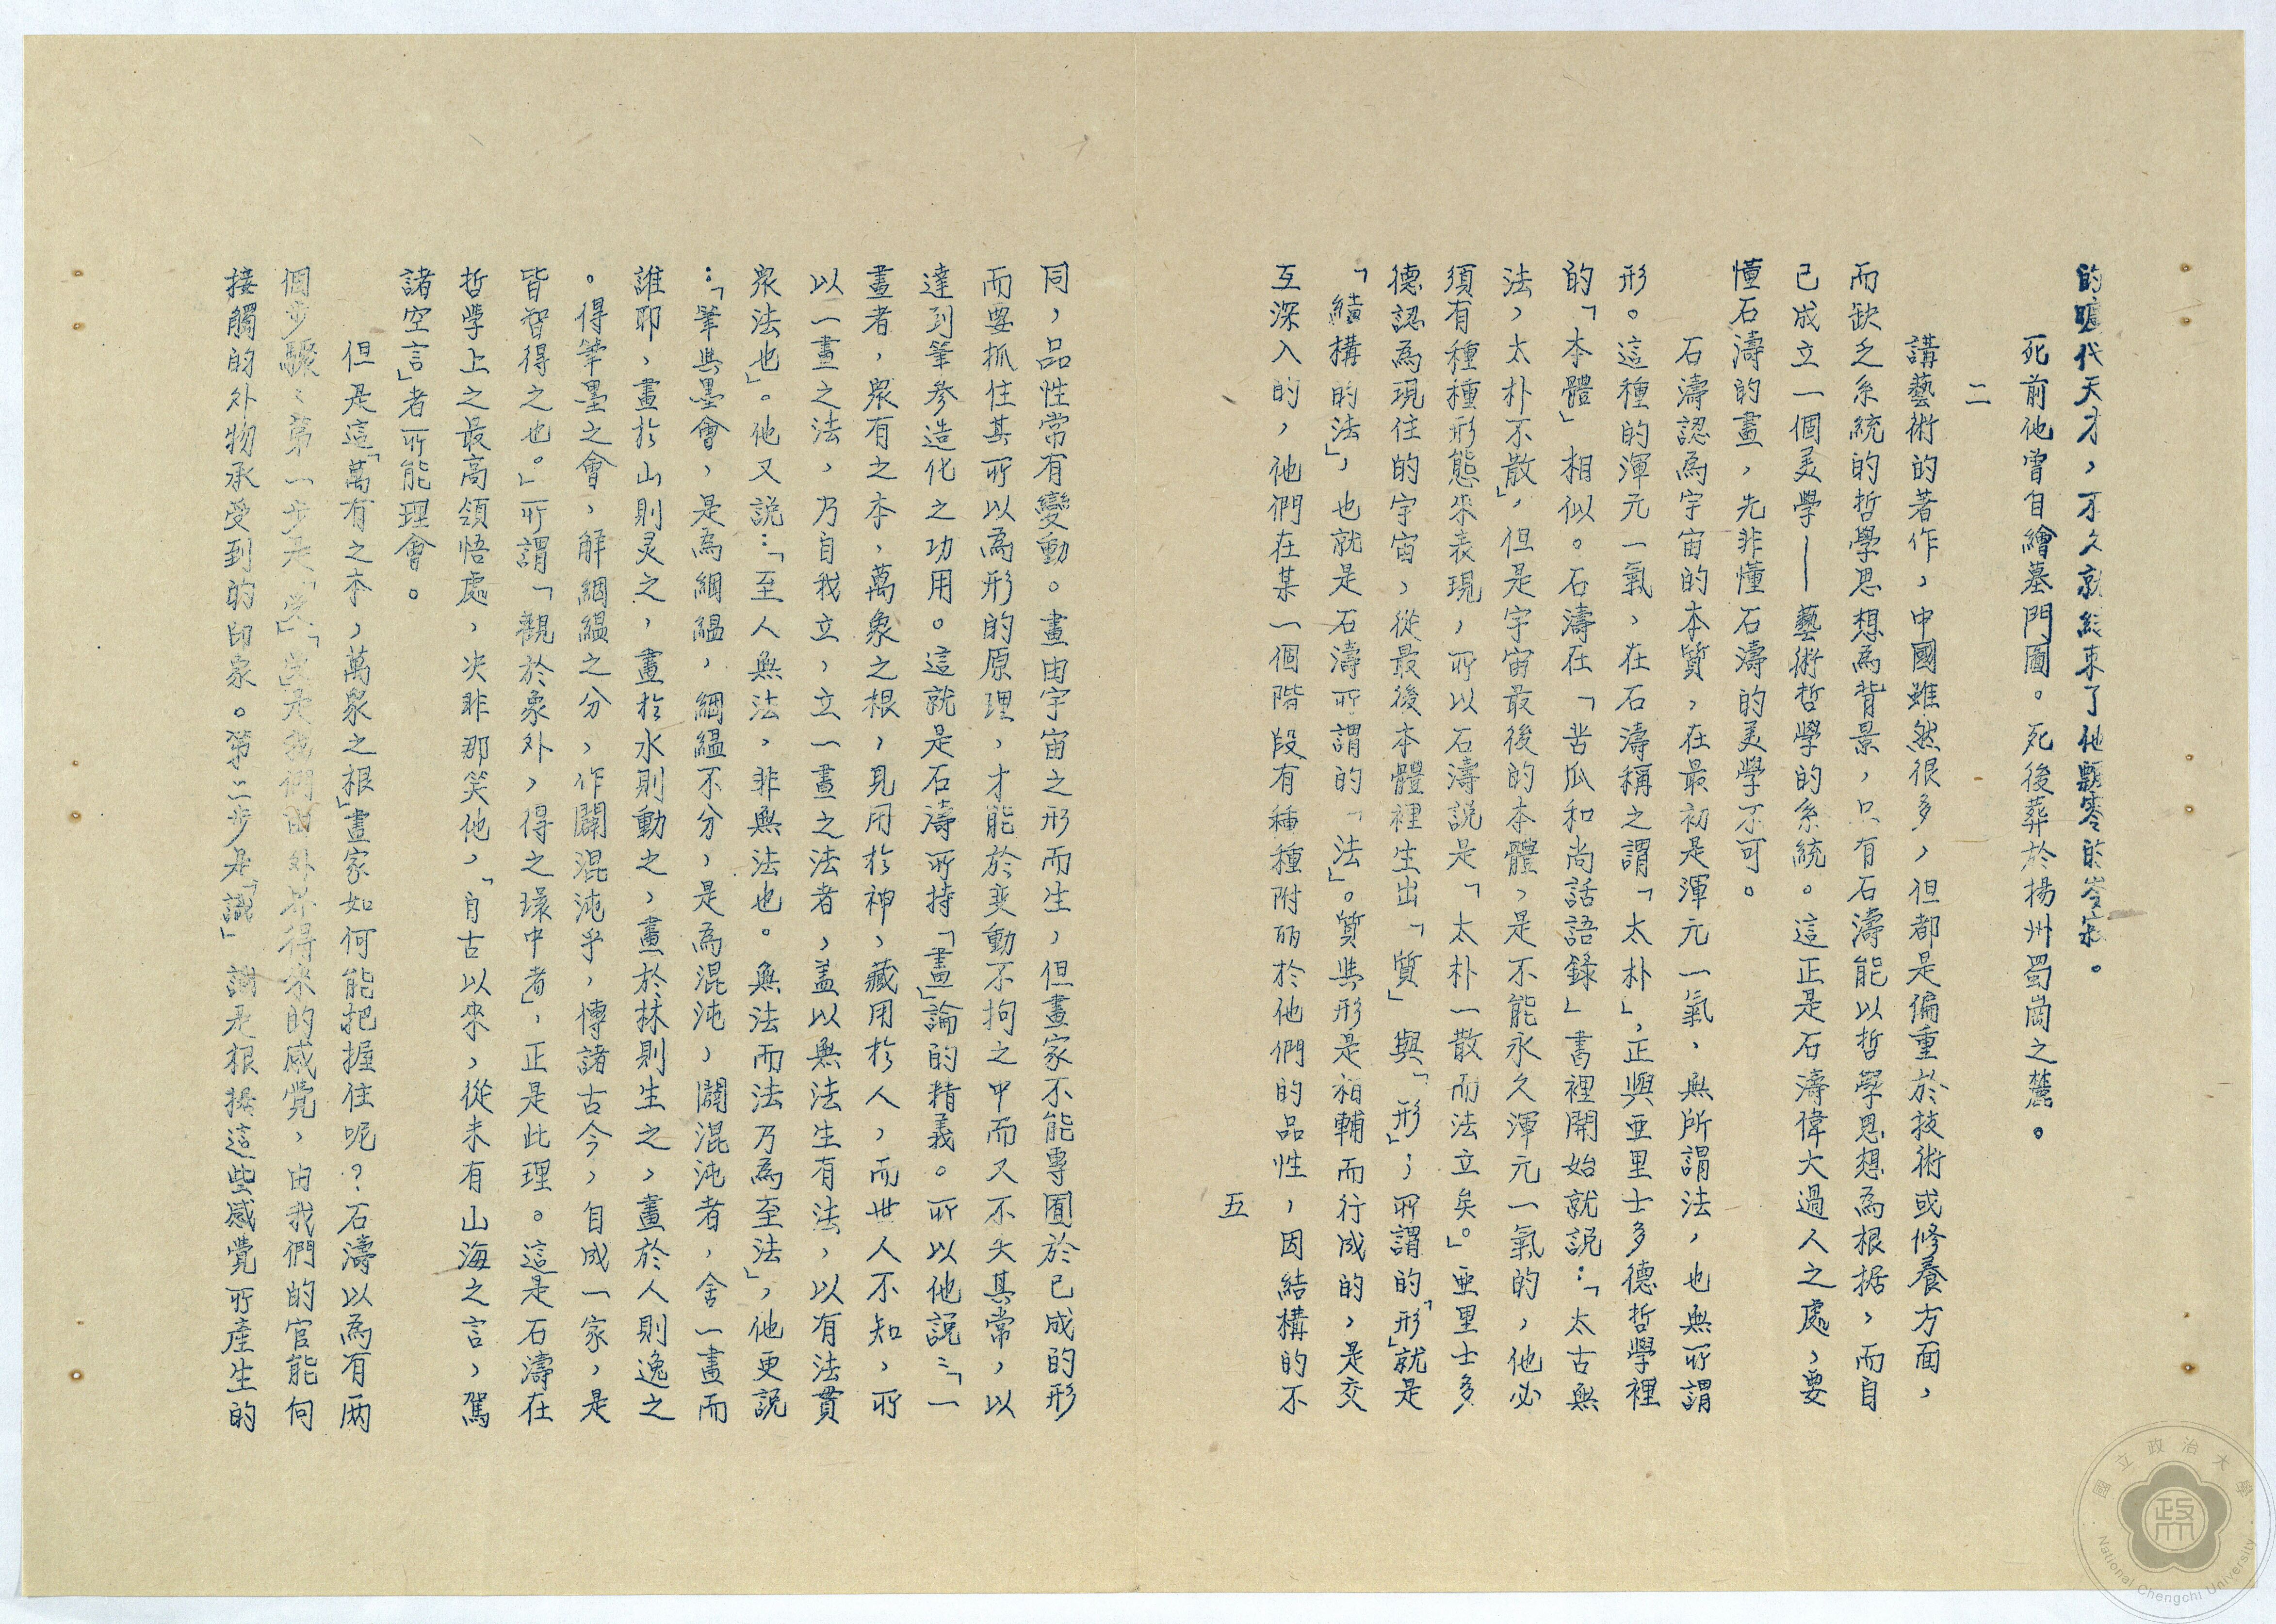 的曠代天才，不久就結束了他飄零的岑寂。
死前他曾自繪墓門圖。死後葬於揚州蜀崗之麓。
二
講藝術的著作，中國雖然很多，但都是偏重於技術或修養方面，
而缺乏系統的哲學思想為背景，只有石濤能以哲學思想為根据，而自
已成立一個美學——藝術哲學的系統。這正是石濤偉大過人之處，要
懂石濤的畫，先非懂石濤的美學不可。
石濤認為宇宙的本質，在最初是渾元一氣，無所謂法，也無所謂
形。這種的渾元一氣，在石濤稱之謂「太朴」，正與亜里士多德哲學裡
的「本體」相似。石濤在「苦瓜和尚話語錄」書裡開始就説：「太古無
法，太朴不散」，但是宇宙最後的本體，是不能永久渾元一氣的，他必
須有種種形態來表現，所以石濤説是「太朴一散而法立矣。」亜里士多
德認為現住的宇宙，從最後本體裡生出「質」與「形」；所謂的「形」就是
「結構的法」，也就是石濤所謂的「法」。質與形是相輔而行成的，是交
互深入的，他們在某一個階段有種種附丽於他們的品性，因結構的不
五
同，品性常有變動。畫由宇宙之形而生，但畫家不能專囿於已成的形
而要抓住其所以為形的原理，才能於变動不拘之中而又不失其常，以
達到筆參造化之功用。這就是石濤所持「畫」論的精義。所以他説：「一
畫者，衆有之本，萬象之根，見用於神，藏用於人，而世人不知，所
以一畫之法，乃自我立，立一畫之法者，盖以無法生有法，以有法貫
衆法也」。他又説：「至人無法，非無法也。無法而法乃為至法」，他更説
：「筆與墨會，是為絪縕，絪縕不分，是為混沌，闢混沌者，舍一畫而
誰耶，畫於山則灵之，畫於水則動之，畫於林則生之，畫於人則逸之
。得筆墨之會，解絪縕之分，作闢混沌乎，傳諸古今，自成一家，是
皆智得之也。」所謂「觀於象外，得之環中者」，正是此理。這是石濤在
哲學上之最高領悟處，决非那笑他，「自古以來，從未有山海之言，駕
諸空言」者所能理會。
但是這「萬有之本，萬象之根」畫家如何能把握住呢？石濤以為有兩
個步驟：第一步是「受」「受」是我們由外界得來的感覺，由我們的官能何
接觸的外物承受到的印象。第二步是「識」識是根据這些感覺所產生的
國立政治大學
National Chengchi University